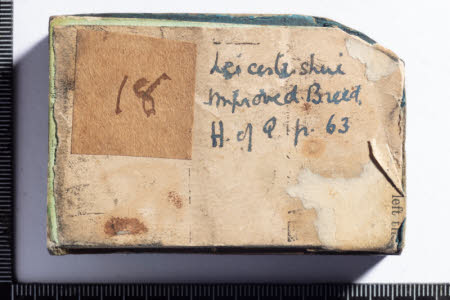 18
Leicestershire
Improved Breed.
H. of Q. p. 63
left